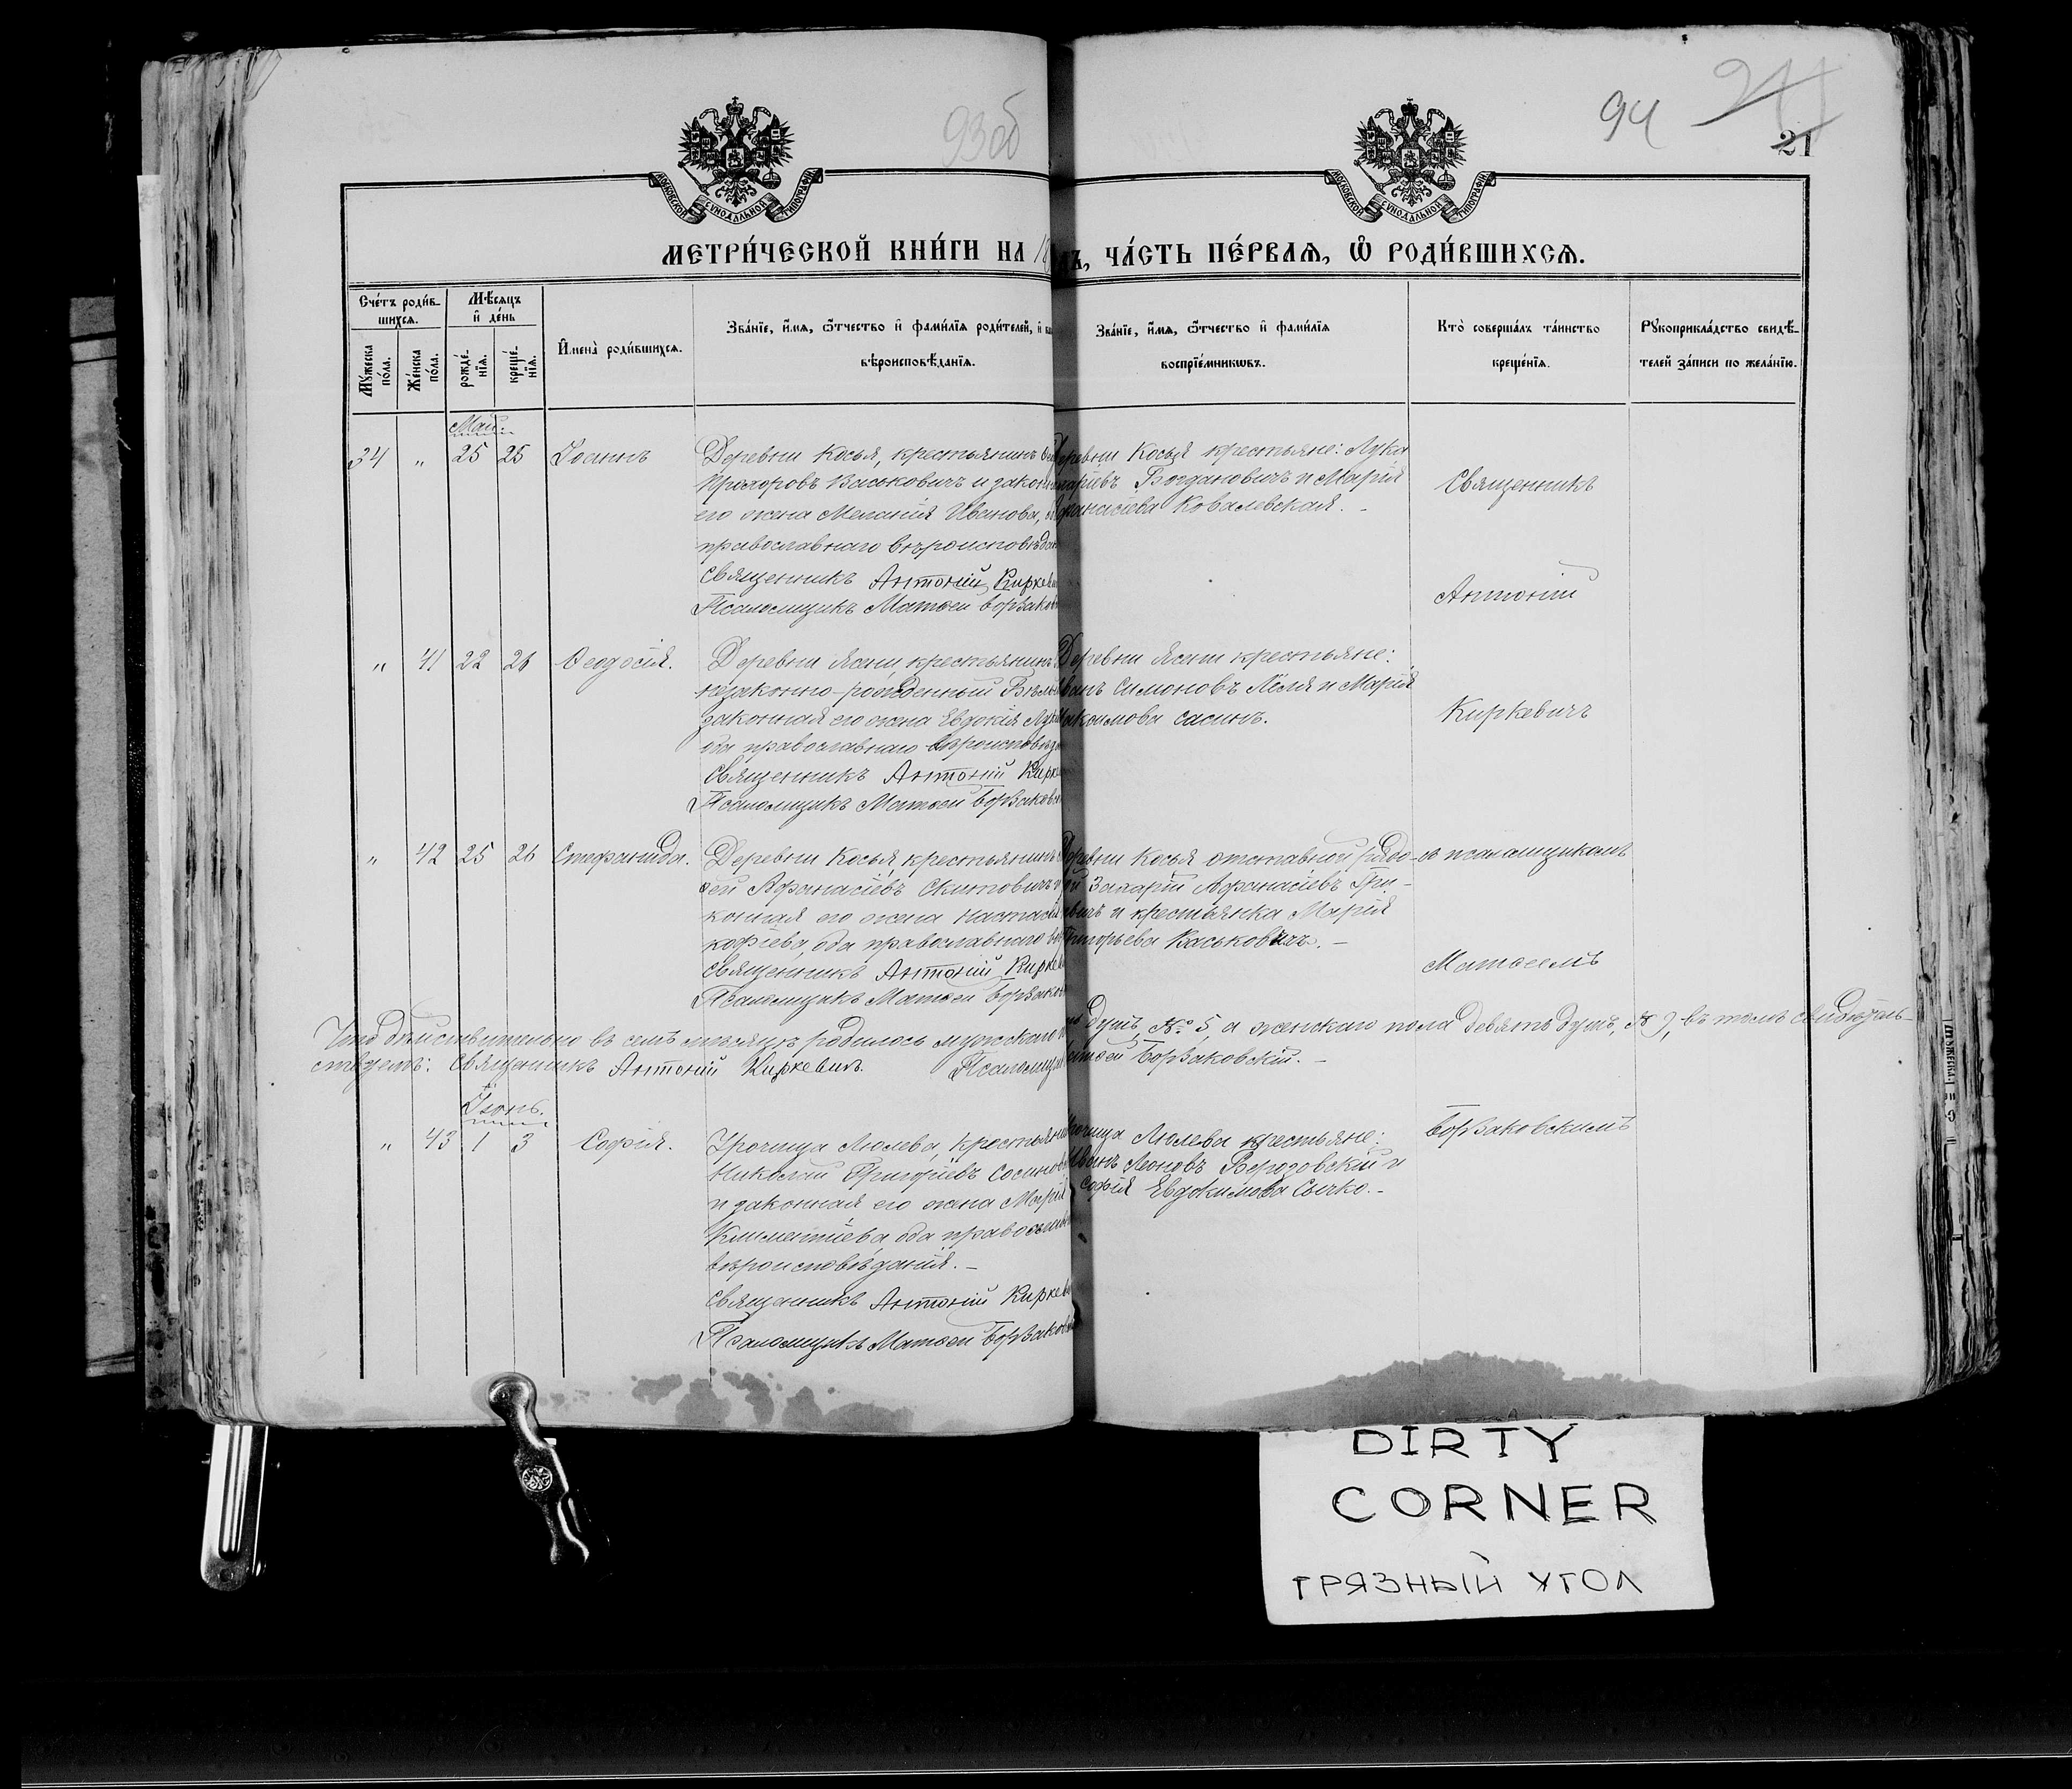 93об
94
21
МОСКОВСКОЙ СУНОДАЛЬНОЙ ТИПОГРАФІИ
МОСКОВСКОЙ СУНОДАЛЬНОЙ ТИПОГРАФІИ
МЕТРИ́ЧЕСКОЙ КНИ́ГИ НА 18
ДЪ, ЧА́СТЬ ПЕ́РВАѦ, Ѽ РОДИ́ВШИХСѦ.
Сче́тъ роди́в-
шихсѧ.
Мѣ́сѧцъ
и҆ де́нь
Мꙋ́жеска
по́ла.
Же́нска
по́ла.
рожде́-
нїѧ.
креще́-
нїѧ.
И҆мена̀ роди́вшихсѧ.
Зва́нїе, и҆́мѧ, ѻ҆́тчество и҆ фами́лїѧ роди́телей, и҆
вѣроисповѣ́данїѧ.
Зва́нїе, и҆́мѧ, ѻ҆́тчество и҆ фами́лїѧ
воспрїе́мникѡвъ.
Кто̀ соверша́лъ та́инство
креще́нїѧ.
Рꙋкоприкла́дство свидѣ́-
телей за́писи по жела́нїю.
Май.
34 " 25 25 Іоаннъ
Деревни Косья, крестьянинъ
Прохоровъ Васьковичъ и закон
его жена Меланія Иванова,
православнаго вѣроисповѣдан
Священникъ Антоній Киркеви
Псаломщикъ Матѳей Борзаков
еревни Косья крестьяне: Лука
Богдановичъ и Марія
анасіева Ковалевская. -
Священникъ
Антоній
" 41 22 26 Ѳеодосія.
Деревни Ясени крестьянинъ
незаконно-рожденный
законная его жена Евдокія
оба православнаго вѣроисповѣд
Священникъ Антоній Кирке
Псаломщикъ Матѳей Борзаков
Деревни Ясени крестьяне:
ванъ Симоновъ Леля и Марія
аксимова Сасинъ.
Киркевичъ
" 42 25 26 Стефанида.
Деревни Косья, крестьянинъ
сей Аѳанасіевъ Скитовичъ
конная его жена Настасія
кофіева, оба православнаго
Священникъ Антоній Кирке
Псаломщикъ Матѳей Борзаков
еревни Косья отставной рядо-
ой Захарій Аѳанасіевъ Гри-
евичъ и крестьянка Марія
Григорьева Васьковичъ. -
съ псаломщикомъ
Матѳеемъ
Что дѣйствительно въ семъ мѣсяцѣ родилось мужскаго
душъ, № 5, а женскаго пола девять душъ, № 9, въ томъ свидѣтель-
ствуемъ: Священникъ Антоній Киркевичъ. Псаломщик
атѳей Борзаковскій. -
Іюнь.
" 43 1 3 Софія.
Урочища Люлева, крестьянин
Николай Григорьевъ
и законная его жена Марія
Климентіева оба православ
вѣроисповѣданія. -
Священникъ Антоній Киркев
Псаломщикъ Матѳей Борзаков
рочища Люлева крестьяне:
Иванъ Леоновъ и
Софія Евдокимова Сычко. -
Борзаковскимъ
DIRTY
CORNER
ГРЯЗНЫЙ УГОЛ